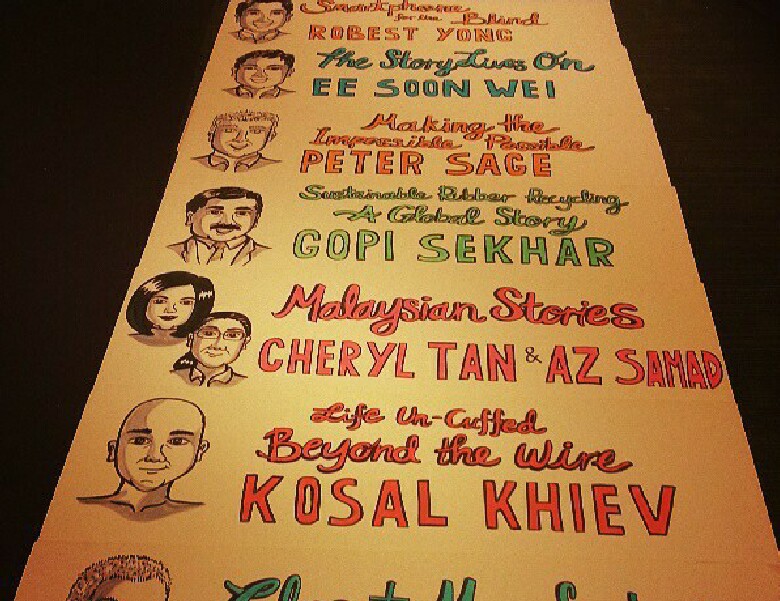 Smartphone
for the Blind
ROBEST YONG
The Story Lives On
EE SOON WEI
Making the
Impossible Possible
PETER SAGE
Sustainable Rubber Recycling
A Global Story
GOPI SEKHAR
Malaysian Stories
CHERYL TAN & AZ SAMAD
Life Un-Cuffed
Beyond the Wire
KOSAL KHIEV